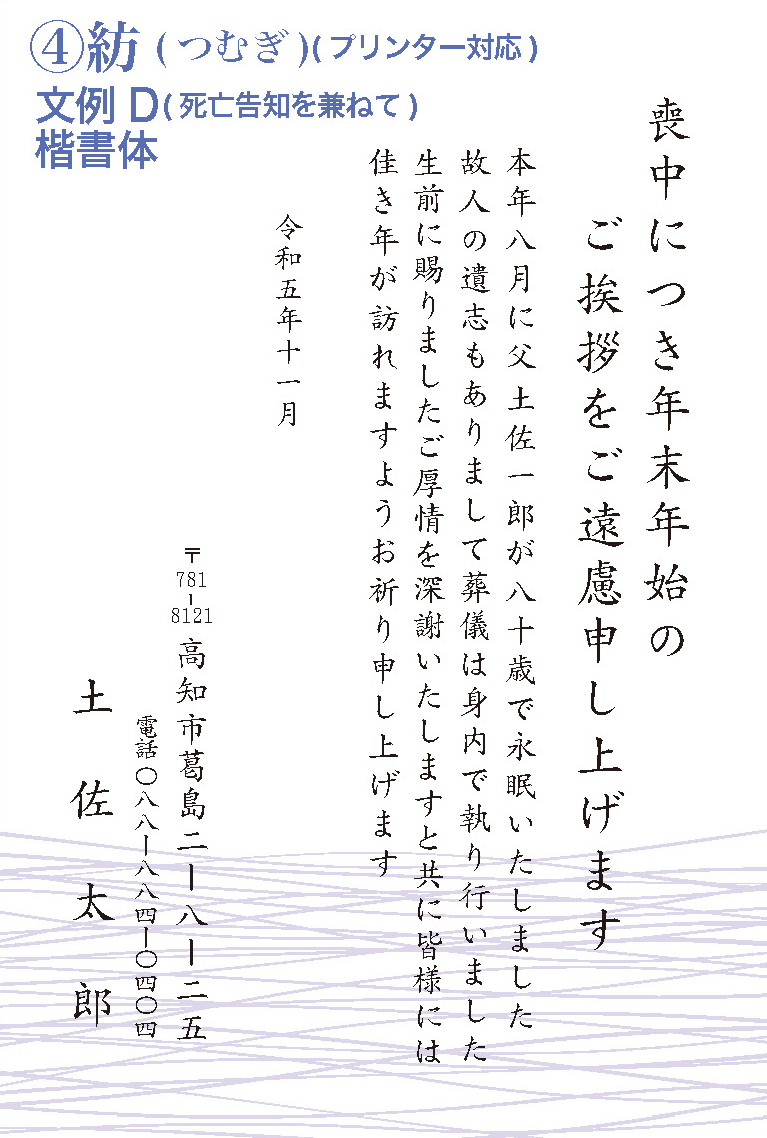 ④紡(つむぎ)(プリンター対応)
文例D(死亡告知を兼ねて)
楷書体
喪中につき年末年始の
ご挨拶をご遠慮申し上げます
本年八月に父土佐一郎が八十歳で永眠いたしました
故人の遺志もありまして葬儀は身内で執り行いました
生前に賜りましたご厚情を深謝いたしますと共に皆様には
佳き年が訪れますようお祈り申し上げます
令和五年十一月
〒781-8121高知市葛島二ー八ー二五
電話〇八八ー八八四ー〇四〇四
土佐太郎